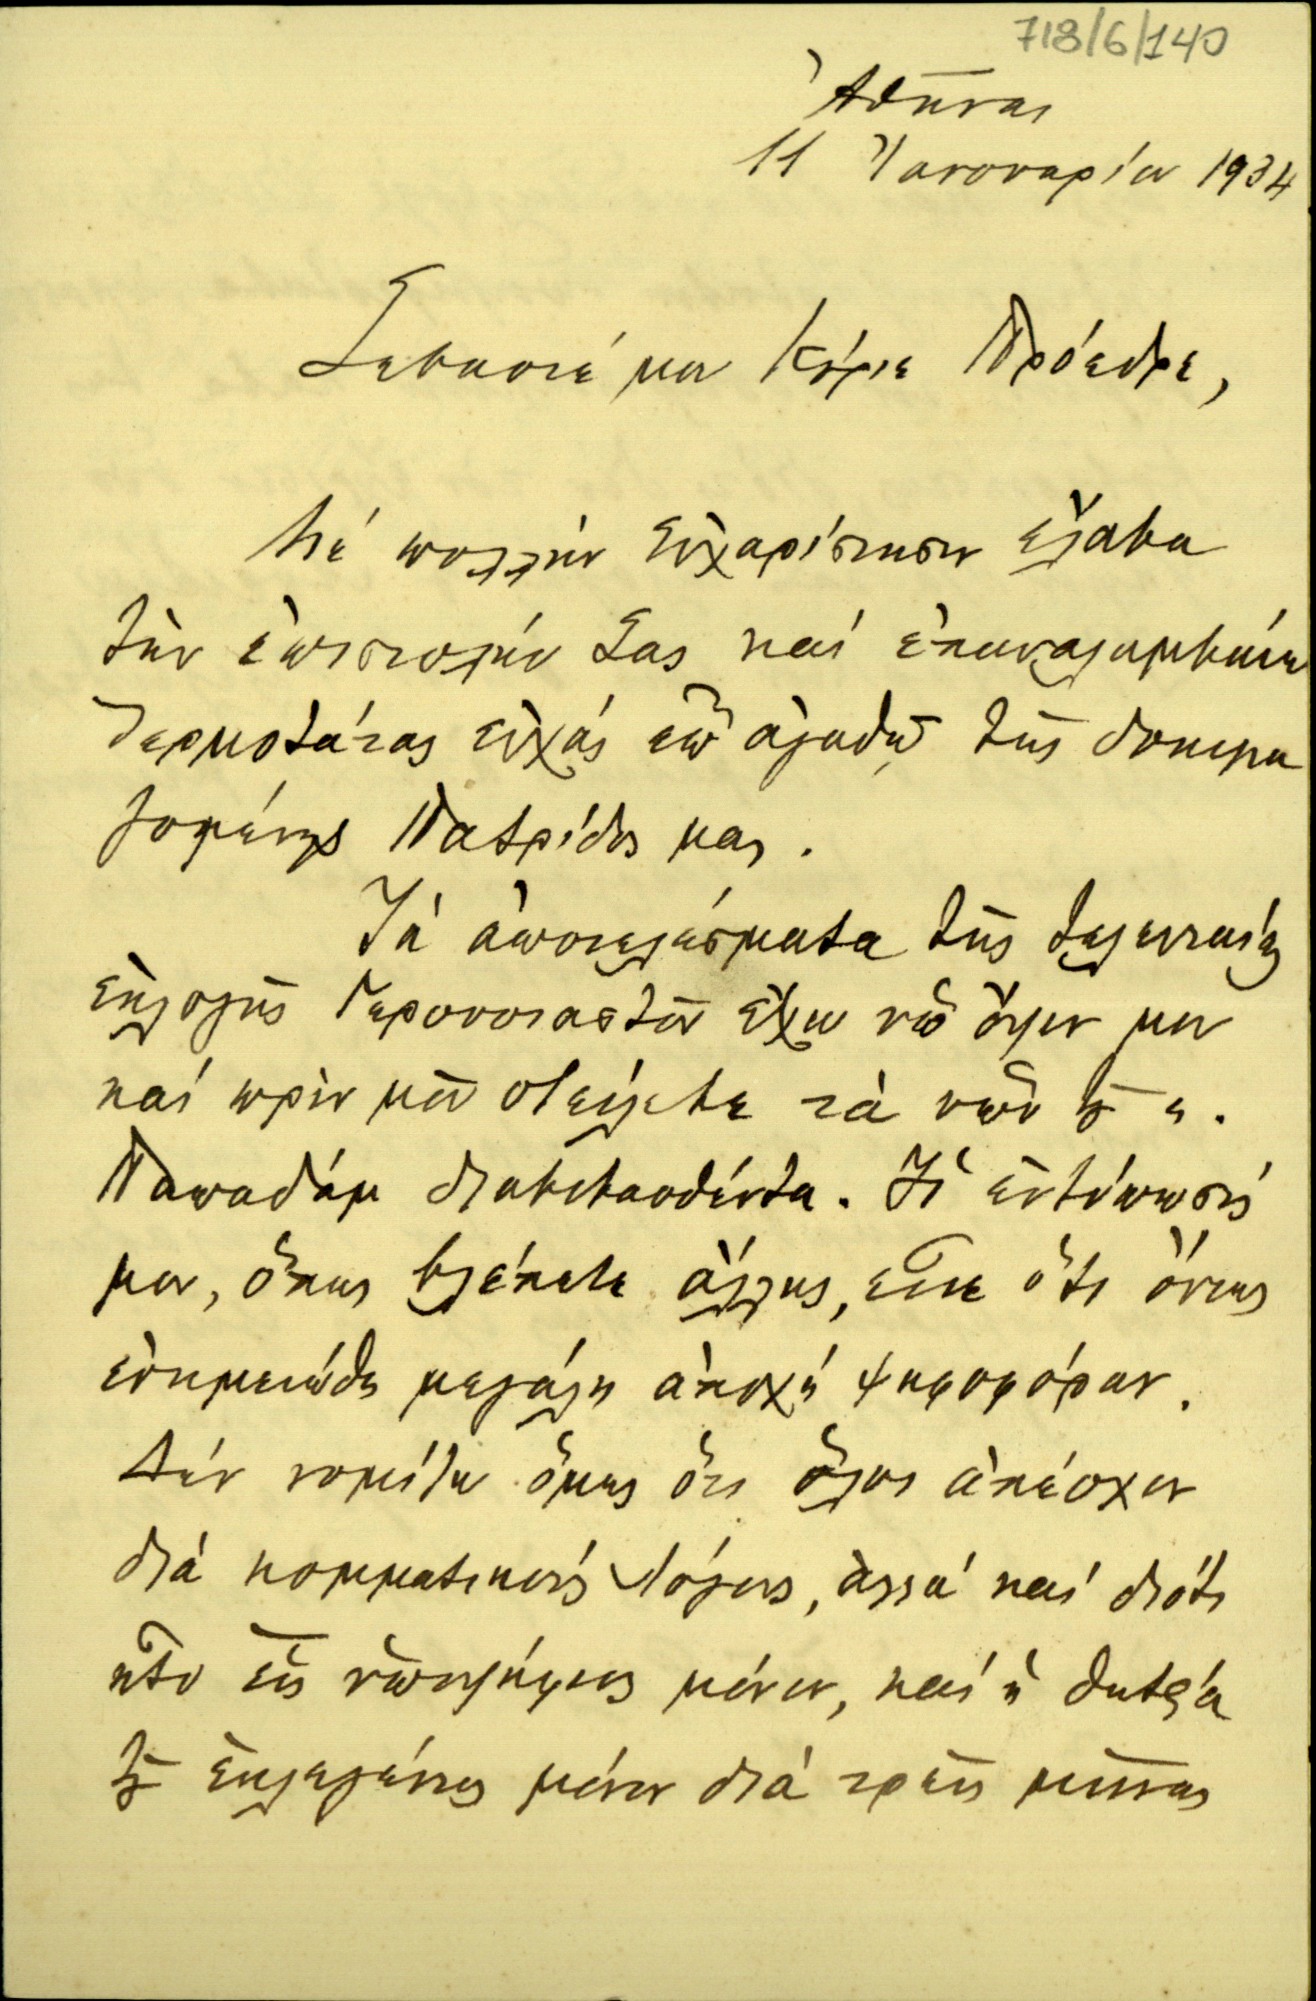 718/6/140
Ἀθῆναι
11 Ἰανουαρίου 1934
Σεβαστέ μου Κύριε Πρόεδρε,
Μέ πολλήν εὐχαρίστησιν ἔλαβα
τὴν ἐπιστολήν Σας καί ἐπαναλαμβάνω
θερμοτάτας εὐχάς ἐπ' ἀγαθῷ τῆς δοκιμα
ζομένης Πατρίδος μας.
Τά ἀποτελέσματα τῆς τελευταίας
ἐκλογῆς Γερουσιαστῶν εἶχον ὑπ' ὄψιν μου
καί πρίν μοῦ στείλετε τά ὑπό τοῦ κ.
Παπαδάμ διαβιβασθέντα. Ἡ ἐντύπωσίς
μου, ὅπως βλέπετε ἄλλως, εἶνε ὅτι ὄντως
ἐσημειώθη μεγάλη ἀποχή ψηφοφόρων.
Δέν νομίζω ὅμως ὅτι ὅλοι ἀπέσχον
διά κομματικούς λόγους, ἀλλά καί διότι
ἦτο εἷς ὑποψήφιος μόνον, καί ἡ θητεία
τοῦ ἐκλεγέντος μόνον διά τρεῖς μῆνας